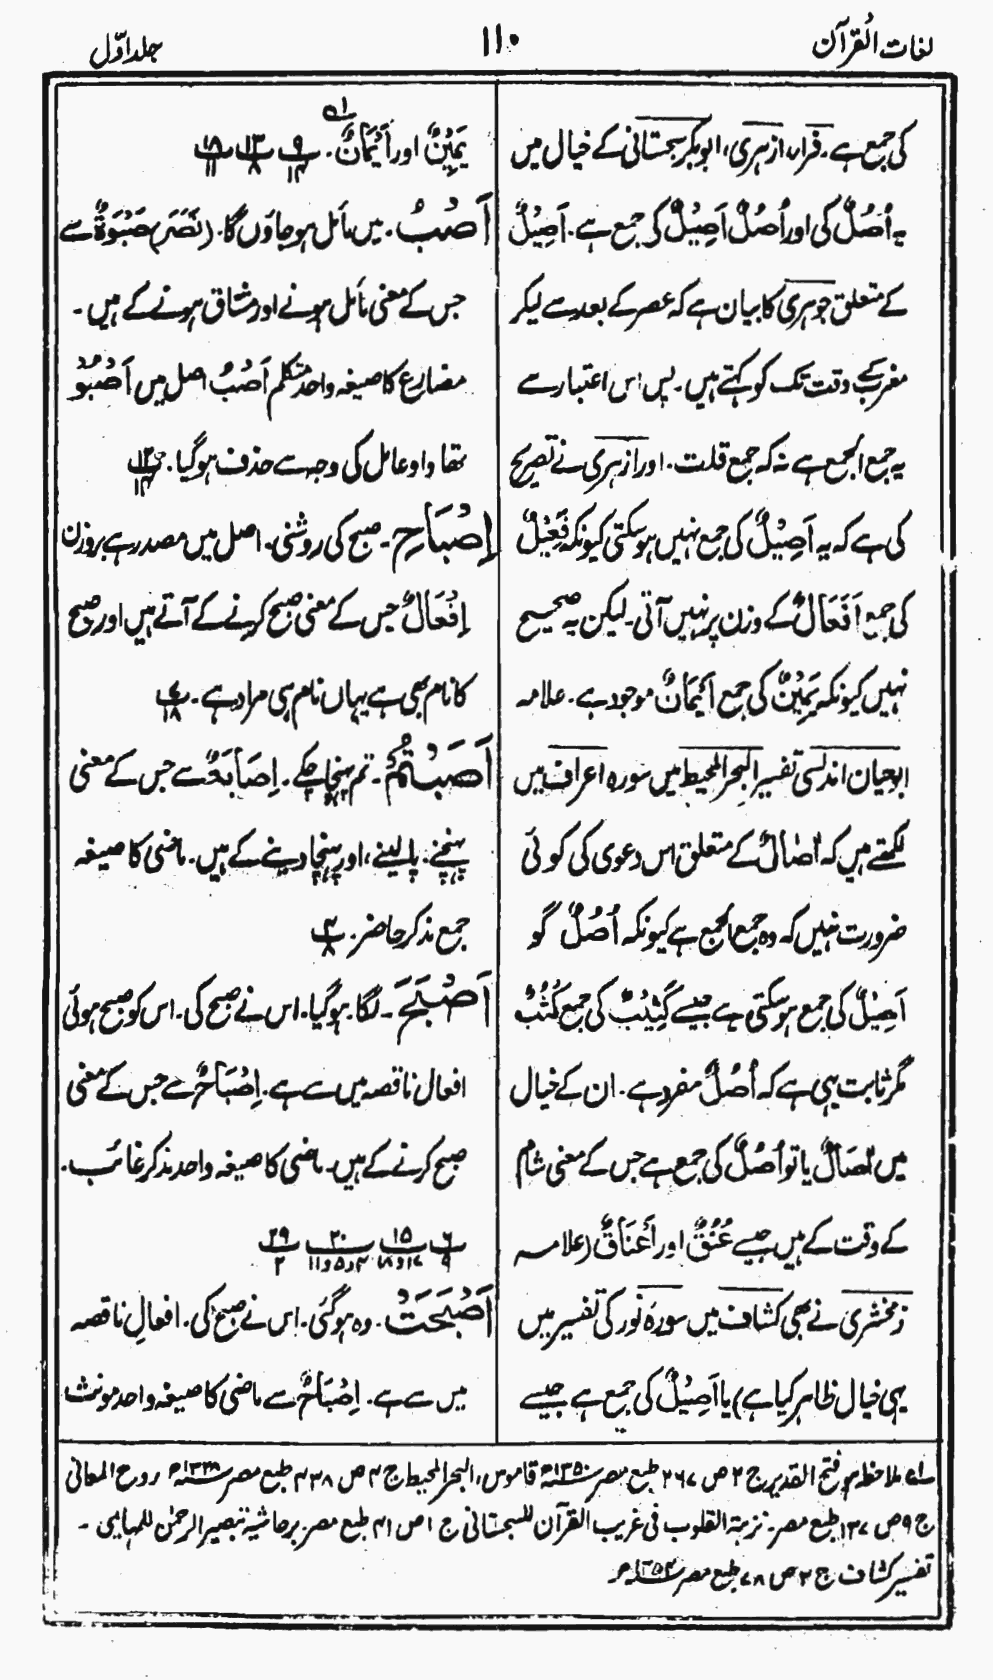 لغات القرآن
۱۱۰
جلد اوّل
کی جمع ہے۔ فراء، ازہری، ابوبکر سجستانی کے خیال میں
یہ اُصُلٌ کی اور اُصُلٌ اَصِیْلٌ کی جمع ہے۔ اَصِیْلٌ
کے متعلق جوہری کا بیان ہے کہ عصر کے بعد سے لیکر
مغرب کے وقت تک کو کہتے ہیں۔ پس اس اعتبار سے
یہ جمع الجمع ہے نہ کہ جمع قلت۔ اور ازہری نے تصریح
کی ہے کہ یہ اَصِیْلٌ کی جمع نہیں ہو سکتی کیونکہ فَعِیْلٌ
کی جمع اَفْعَالٌ کے وزن پر نہیں آتی۔ لیکن یہ صحیح
نہیں کیونکہ یَمِیْنٌ کی جمع اَیْمَانٌ موجود ہے۔ علامہ
ابوحیان اندلسی تفسیر البحر المحیط میں سورہ اعراف میں
لکھتے ہیں کہ اٰصَالٌ کے متعلق اس دعوی کی کوئی
ضرورت نہیں کہ وہ جمع الجمع ہے کیونکہ اُصُلٌ گو
اَصِیْلٌ کی جمع ہو سکتی ہے جیسے کَثِیْبٌ کی جمع کُثُبٌ
مگر ثابت یہی ہے کہ اُصُلٌ مفرد ہے۔ ان کے خیال
میں اٰصَالٌ یا تو اُصُلٌ کی جمع ہے جس کے معنی شام
کے وقت کے ہیں جیسے عُنُقٌ اور اَعْنَاقٌ (علامہ
زمخشری نے بھی کشاف میں سورہ نور کی تفسیر میں
یہی خیال ظاہر کیا ہے) یا اَصِیْلٌ کی جمع ہے جیسے
یَمِیْنٌ اور اَیْمَانٌ۔ لہ ۹/۱۴ ۱۳/۸ ۱۸/۱۱
اَصْبُ۔ میں مائل ہو جاؤں گا۔ (نَصَرَ) صَبْوَۃٌ سے
جس کے معنی مائل ہونے اور مشتاق ہونے کے ہیں۔
مضارع کا صیغہ واحد متکلم اَصْبُ اصل میں اَصْبُوْ
تھا واو عامل کی وجہ سے حذف ہو گیا۔ ۱۲/۱۴
اِصْبَاحِ۔ صبح کی روشنی۔ اصل میں مصدر ہے بروزن
اِفْعَالٌ جس کے معنی صبح کرنے کے آتے ہیں اور صبح
کا نام بھی ہے یہاں نام ہی مراد ہے۔ ۷/۱۸
اَصَبْتُمْ۔ تم پہنچا چکے۔ اِصَابَۃٌ سے جس کے معنی
پہنچنے، پالینے، اور پہنچا دینے کے ہیں۔ ماضی کا صیغہ
جمع مذکر حاضر۔ ۴/۸
اَصْبَحَ۔ لگا۔ ہو گیا۔ اس نے صبح کی۔ اس کو صبح ہوئی
افعال ناقصہ میں سے ہے۔ اِصْبَاحٌ سے جس کے معنی
صبح کرنے کے ہیں۔ ماضی کا صیغہ واحد مذکر غائب۔
۶/۹ ۱۵/۱۷و۱۸ ۲۰/۴و۵و۱۱ ۲۹/۲
اَصْبَحَتْ۔ وہ ہو گئی۔ اس نے صبح کی۔ افعالِ ناقصہ
میں سے ہے۔ اِصْبَاحٌ سے ماضی کا صیغہ واحد مونث
لہ ملاحظہ ہو فتح القدیر ج ۲ ص ۲۶۷ طبع مصر ۱۳۵۰ھ قاموس، البحر المحیط ج ۴ ص ۴۳۸ طبع مصر ۱۳۲۸ھ روح المعانی
ج ۹ ص ۱۳۷ طبع مصر۔ نزہۃ القلوب فی غریب القرآن للسجستانی ج ۱ ص ۴۱ طبع مصر بر حاشیہ تبصیر الرحمٰن للمہایمی۔
تفسیر کشاف ج ۲ ص ۷۸ طبع مصر ۱۳۵۴ھ